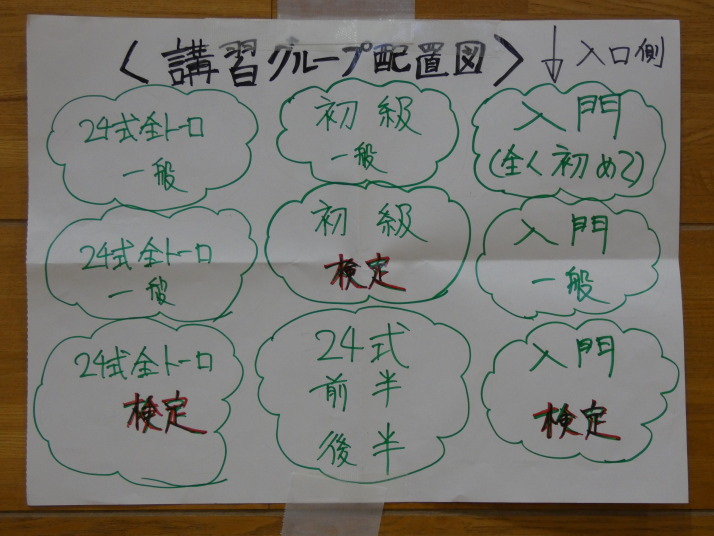 〈講習グループ配置図〉
↓入口側
24式全トーロ
一般
初級
一般
入門
(全く初めて)
24式全トーロ
一般
初級
検定
入門
一般
24式全トーロ
検定
24式
前半
後半
入門
検定